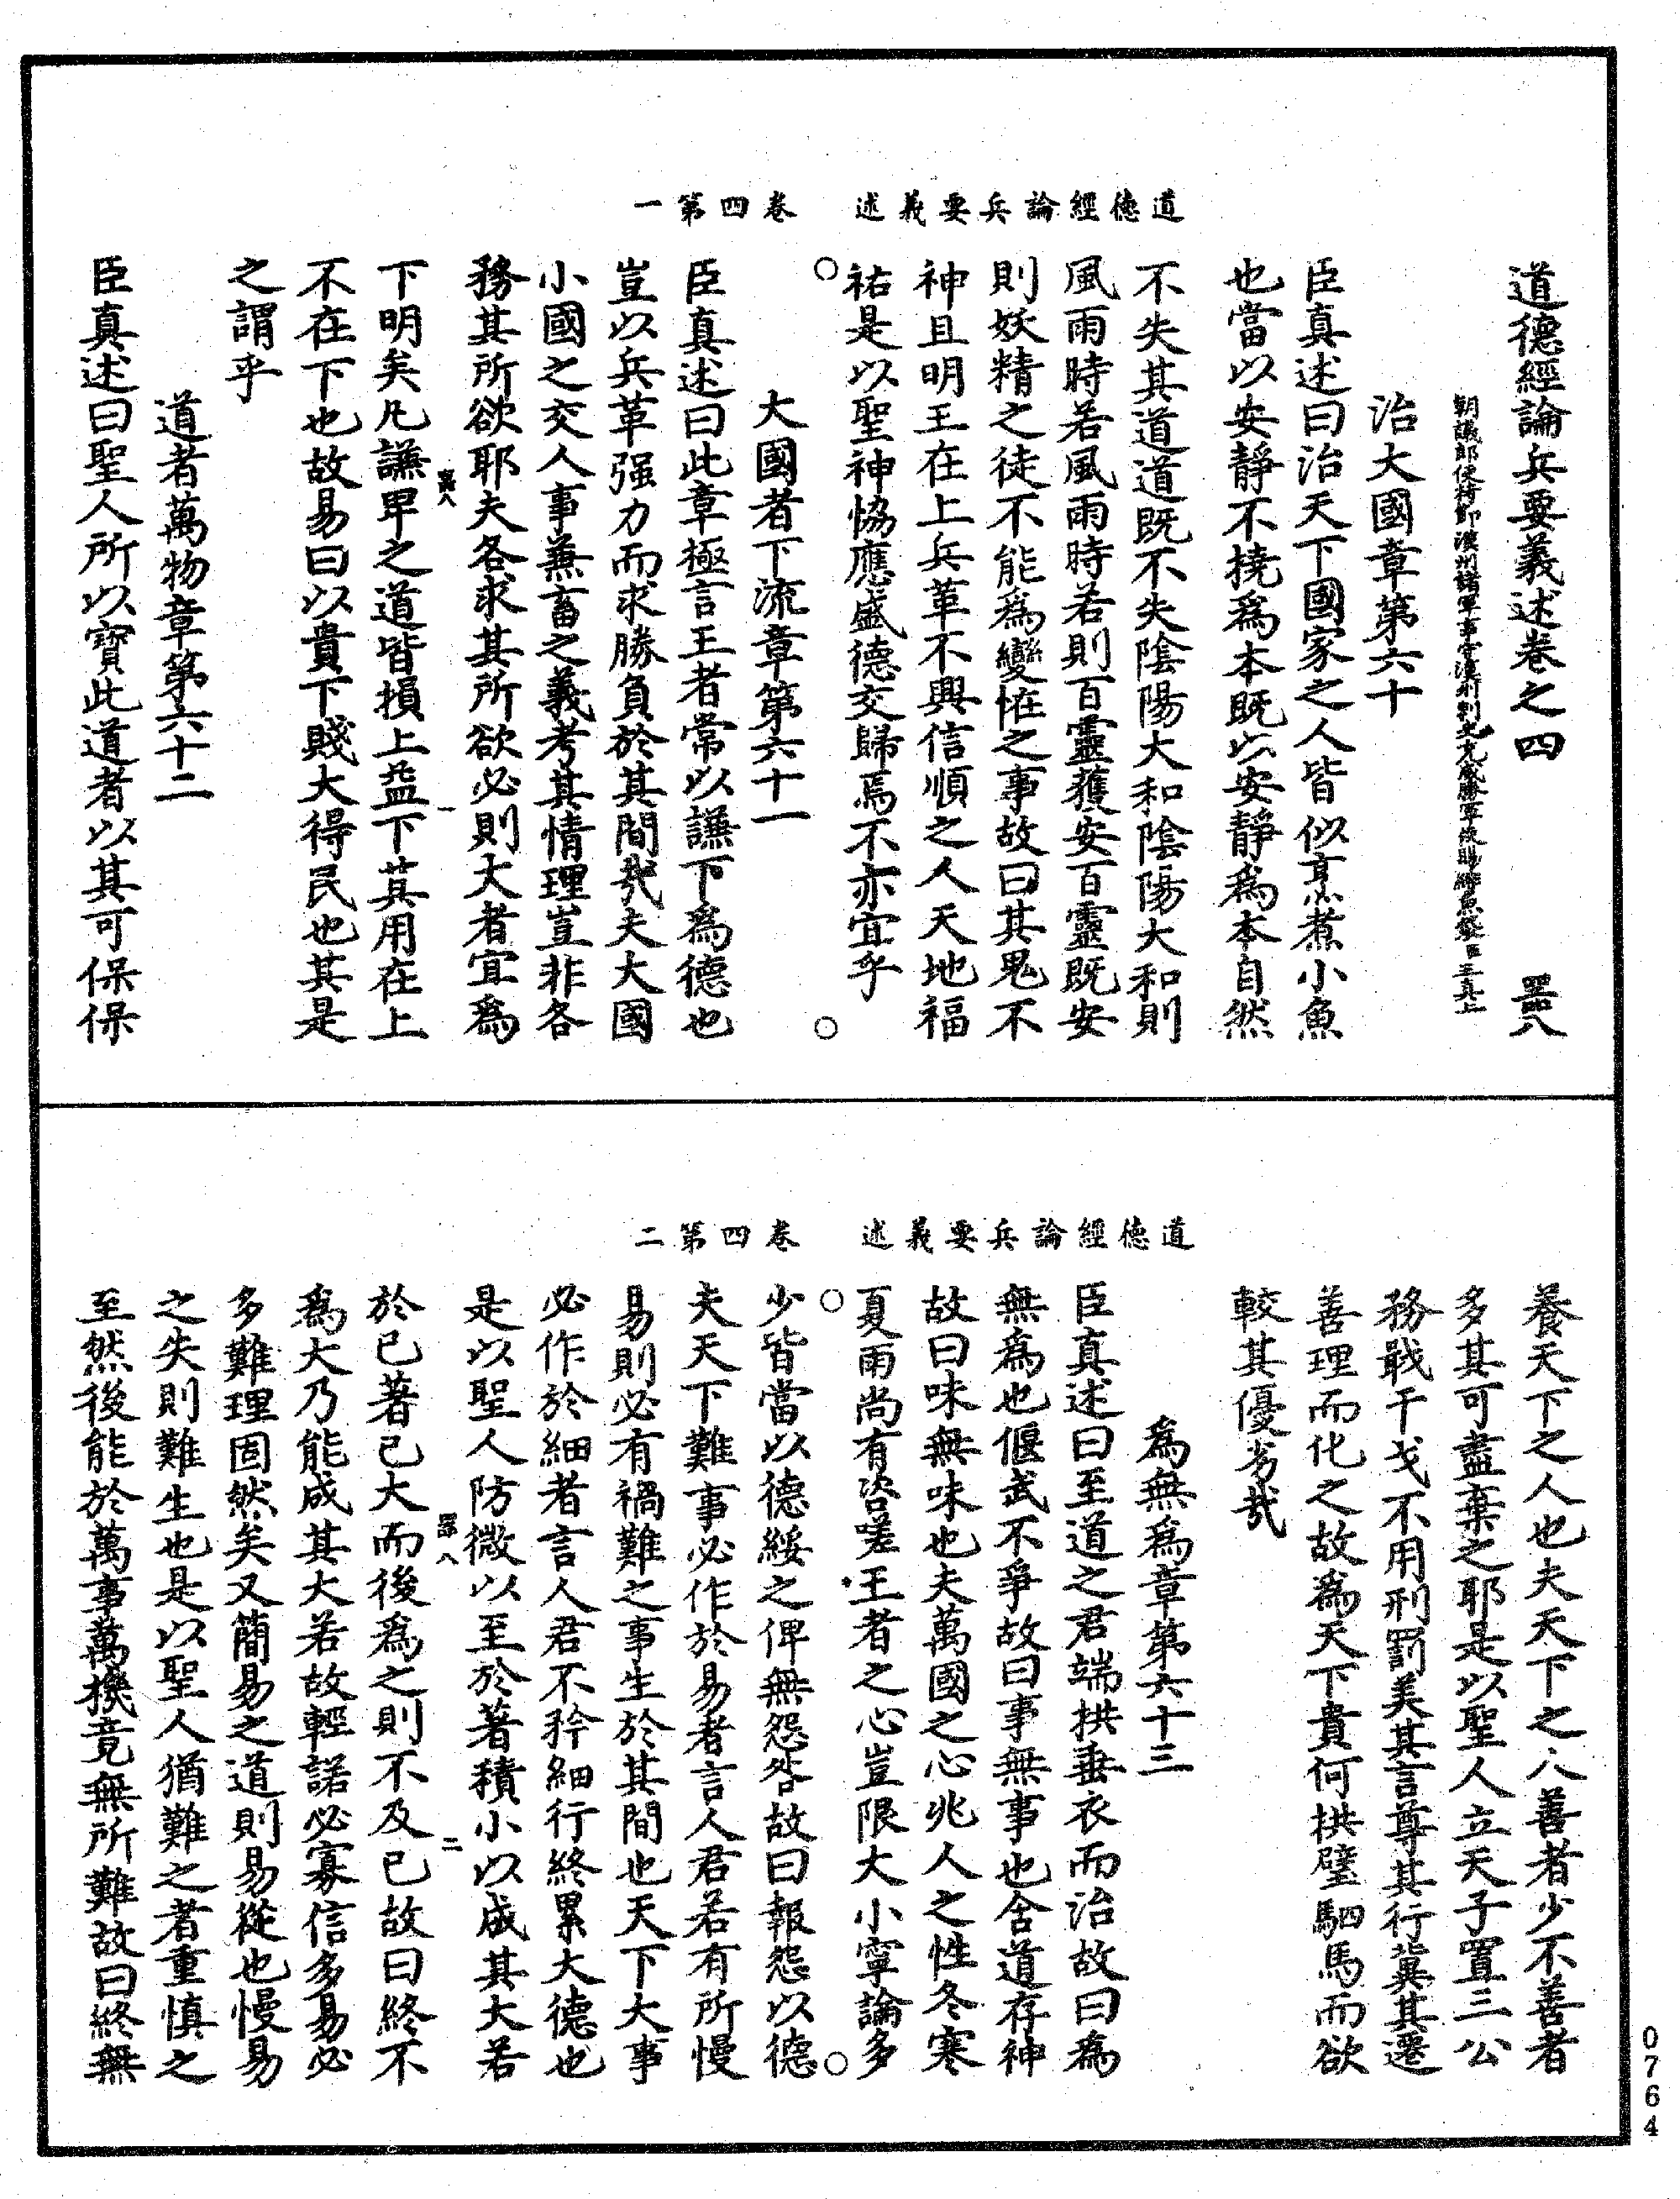 道德經論兵要義述卷之四
朝議郎使持節漢州諸軍事守漢州刺史充威勝軍使賜緋魚袋臣王真上
治大國章第六十
臣真述曰治天下國家之人皆似烹煮小魚
也當以安靜不撓爲本既以安靜爲本自然
不失其道道既不失陰陽大和陰陽大和則
風雨時若風雨時若則百靈獲安百靈既安
則妖精之徒不能爲變怪之事故曰其鬼不
神且明王在上兵革不興信順之人天地福
祐是以聖神恊應盛德交歸焉不亦宜乎
道德經論兵要義述 卷四第一
大國者下流章第六十一
臣真述曰此章極言王者常以謙下爲德也
豈以兵革强力而求勝負於其間哉夫大國
小國之交人事兼畜之義考其情理豈非各
務其所欲耶夫各求其所欲必則大者宜爲
下明矣凡謙卑之道皆損上益下其用在上
不在下也故易曰以貴下賤大得民也其是
之謂乎
道者萬物章第六十二
臣真述曰聖人所以寶此道者以其可保保
養天下之人也夫天下之人善者少不善者
多其可盡棄之耶是以聖人立天子置三公
務戢干戈不用刑罰美其言尊其行冀其遷
善理而化之故爲天下貴何拱璧駟馬而欲
較其優劣哉
爲無爲章第六十三
臣真述曰至道之君端拱垂衣而治故曰爲
無爲也偃武不爭故曰事無事也含道存神
故曰味無味也夫萬國之心兆人之性冬寒
夏雨尚有咨嗟王者之心豈限大小寧論多
道德經論兵要義述 卷四第二
少皆當以德綏之俾無怨咎故曰報怨以德
夫天下難事必作於易者言人君若有所慢
易則必有禍難之事生於其間也天下大事
必作於細者言人君不矜細行終累大德也
是以聖人防微以至於著積小以成其大若
於已著已大而後爲之則不及已故曰終不
爲大乃能成其大若故輕諾必寡信多易必
多難理固然矣又簡易之道則易從也慢易
之失則難生也是以聖人猶難之者重慎之
至然後能於萬事萬機竟無所難故曰終無
0764